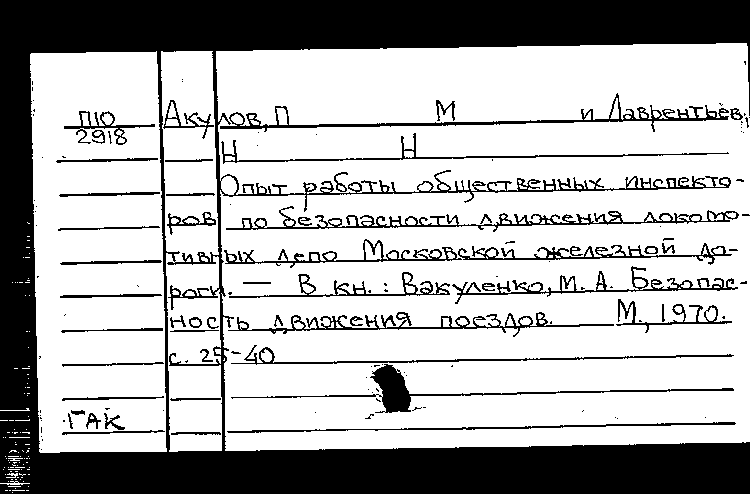 П10 Акулов, П М и Лаврентьев,
2918
Н Н
Опыт работы общественных инспекто-
ров по безопасности движения локомо-
тивных депо Московской железной до-
роги. — В кн.: Вакуленко, М. А. Безопас-
ность движения поездов. М., 1970.
с. 25-40
ГАК